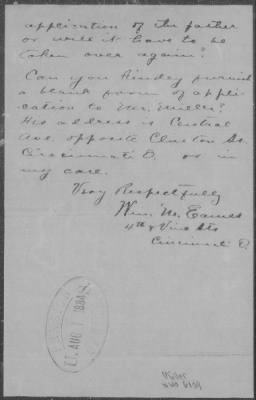 application of the father
or will it have to be
taken over again?
Can you kindly furnish
a blank form of appli-
cation to Mr. Miller?
His address is Central
Ave. opposite Clinton St.
Cincinnati O. or in
my care.
Very Respectfully
Wm. M. Eames
4th & Vine Sts
Cincinnati O.
AUG 1